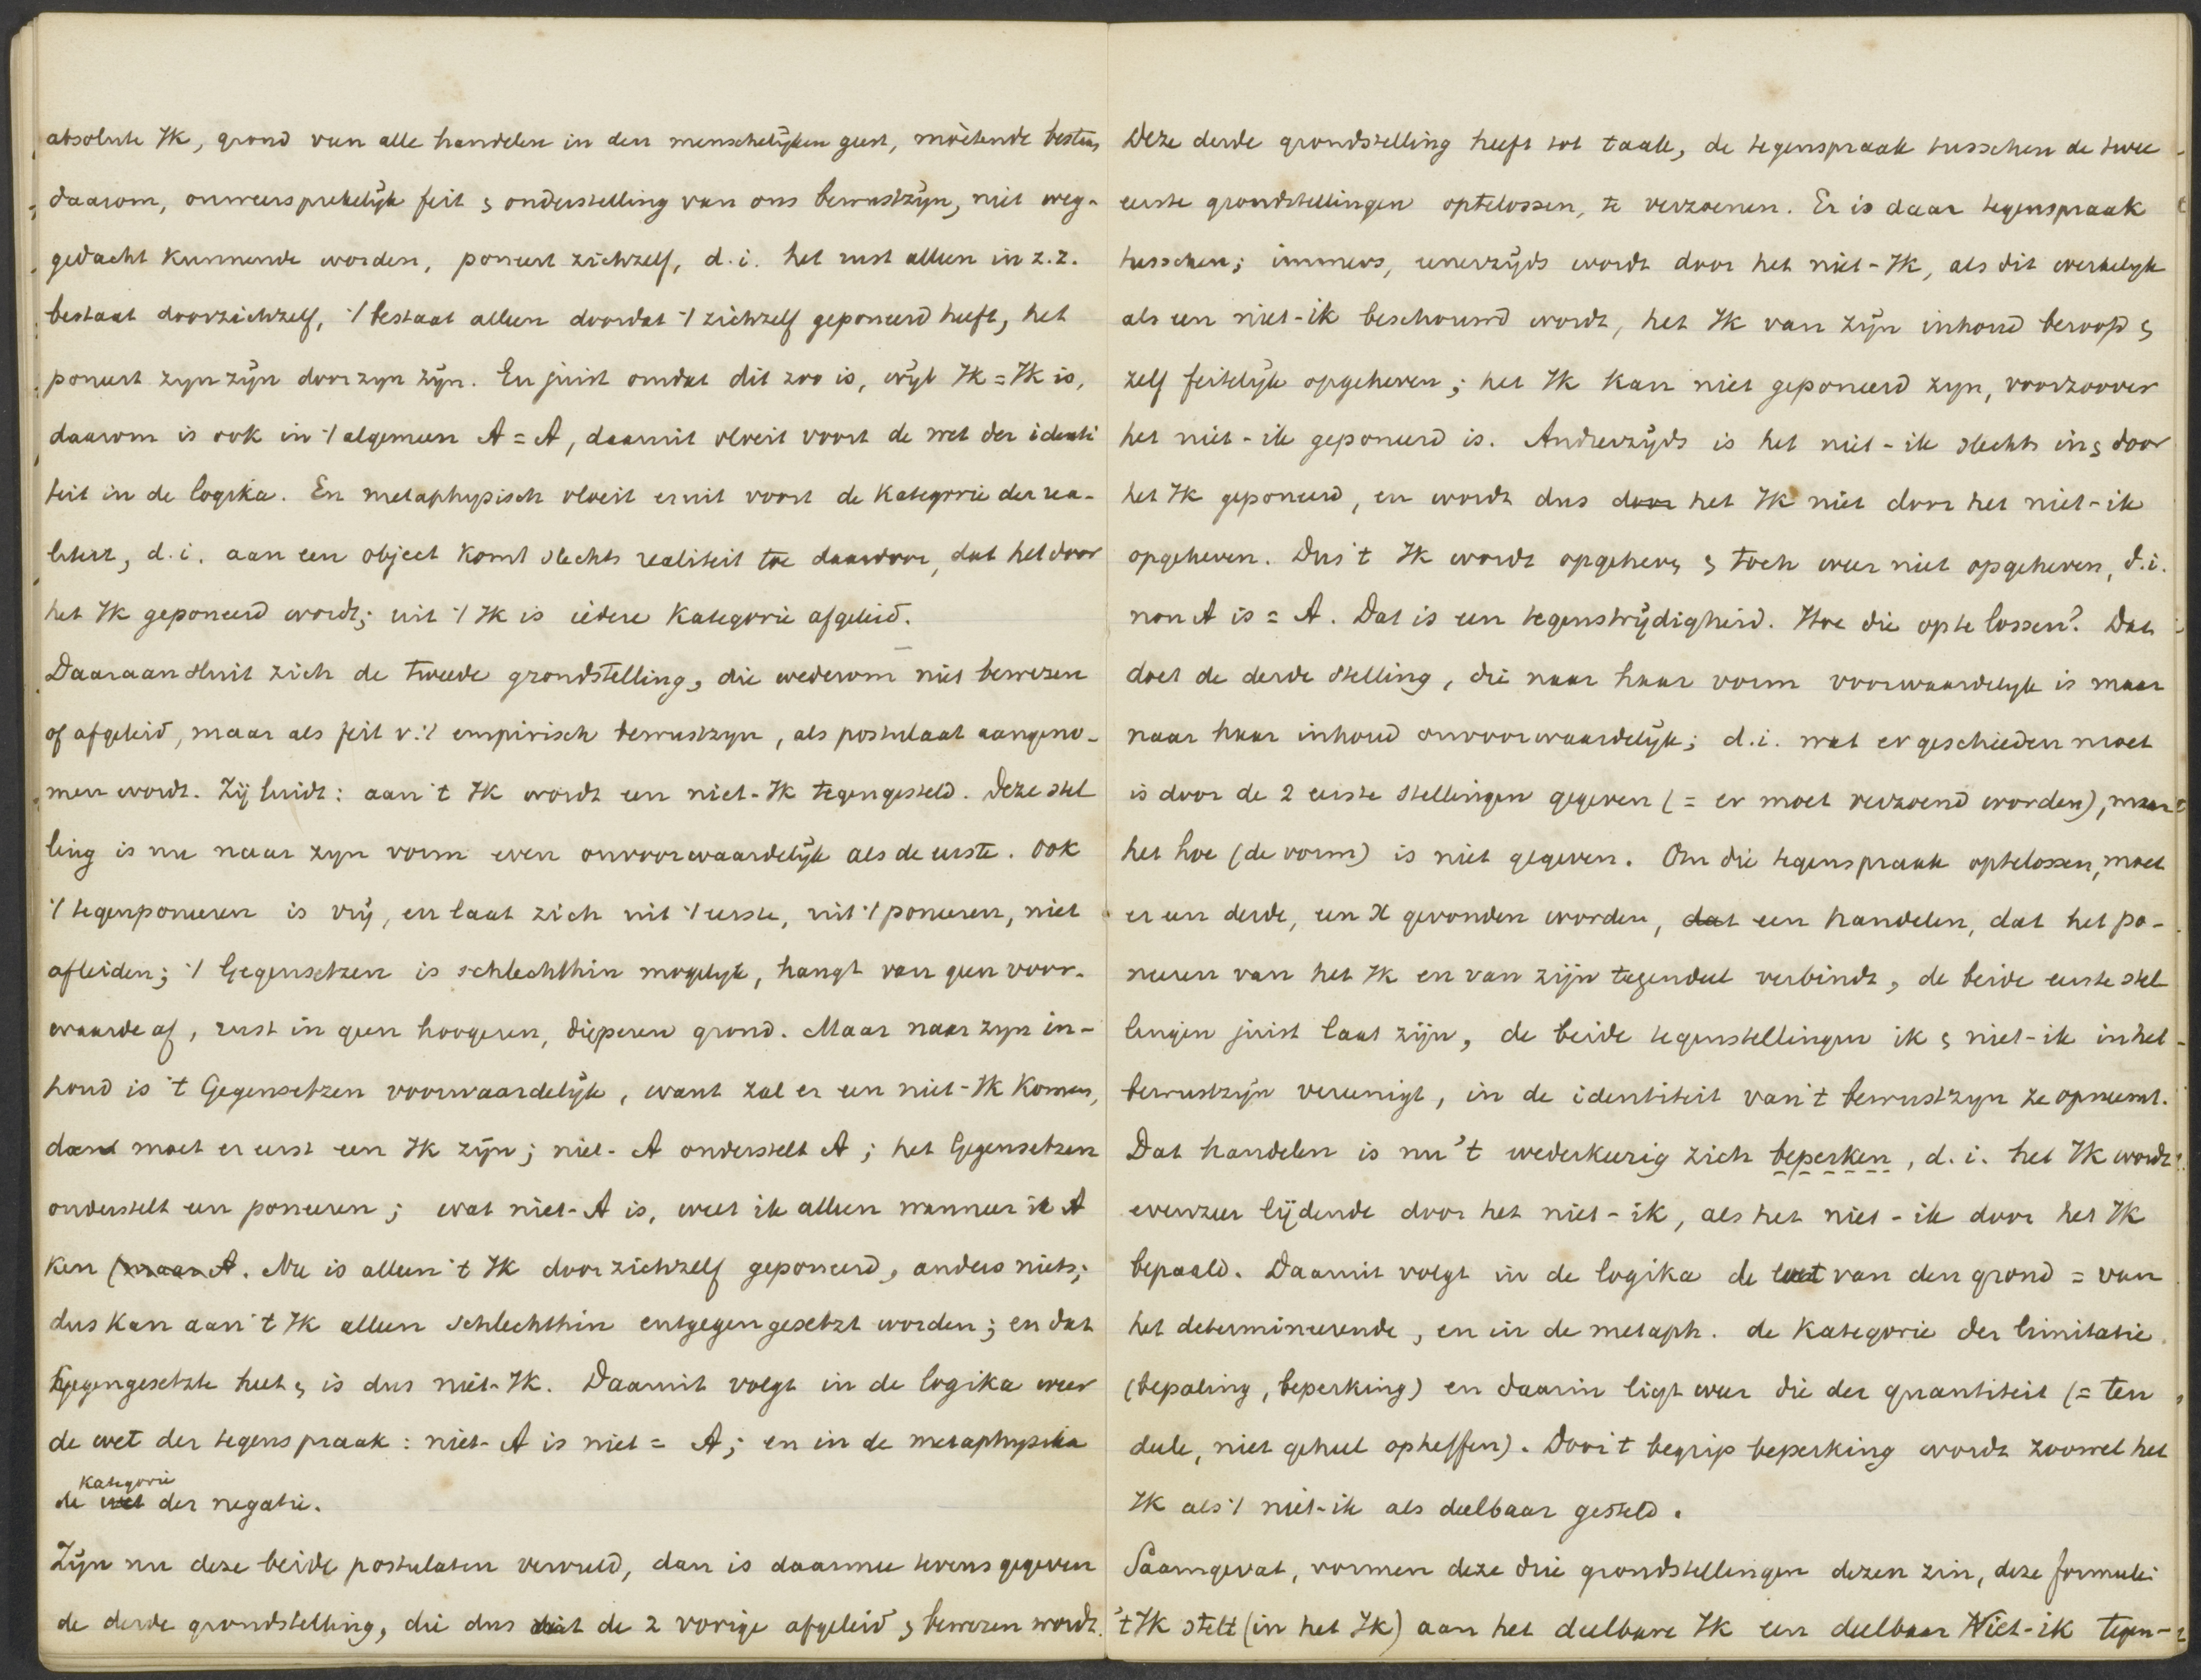 absolute Ik, grond van alle handelen in den menschelijken geest, moetende bestaan,
daarom, onweersprekelijk feit & onderstelling van ons bewustzijn, niet weg-
gedacht kunnende worden, poneert zichzelf, d.i. het rust alleen in z.z.
bestaat doorzichzelf, 't bestaat alleen doordat 't zichzelf geponeerd heeft, het
poneert zyn zijn door zyn zijn. En juist omdat dit zoo is, wijl Ik = Ik is,
daarom is ook in 't algemeen A = A, daaruit vloeit voort de wet der identi
teit in de logika. En metaphysisch vloeit eruit voort de Kategorie der rea-
liteit, d.i. aan een object komt slechts realiteit toe daardoor, dat het door
het Ik geponeerd wordt; uit 't Ik is iedere Kategorie afgeleid.
Daaraan sluit zich de tweede grondstelling, die wederom niet bewezen
of afgeleid, maar als feit v. 't empirisch bewustzyn, als postulaat aangeno-
men wordt. Zij luidt: aan 't Ik wordt een niet-Ik tegengesteld. Deze stel
ling is nu naar zyn vorm even onvoorwaardelijk als de eerste. Ook
't tegenponeeren is vrij, en laat zich uit 't eerste, uit 't poneeren, niet
afleiden; 't Gegensetzen is schlechthin mogelyk, hangt van geen voor-
waarde af, rust in geen hoogeren, dieperen grond. Maar naar zyn in-
houd is 't Gegensetzen voorwaardelijk, want zal er een niet-Ik komen,
dan moet er eerst een Ik zijn; niet-A onderstelt A; het Gegensetzen
onderstelt een poneeren; wat niet-A is, weet ik alleen wanneer ik A
ken (maar A. Nu is alleen 't Ik door zichzelf geponeerd, anders niets;
dus kan aan 't Ik alleen schlechthin entgegengesetzt worden; en dat
Gegengesetzte heet & is dus niet-Ik. Daaruit volgt in de logika weer
de wet der tegenspraak: niet-A is niet = A; en in de metaphysika
Kategorie
de wet der negatie.
Zijn nu deze beide postulaten vervuld, dan is daarmee tevens gegeven
de derde grondstelling, die dus uit de 2 vorige afgeleid & bewezen wordt.
Deze derde grondstelling heeft tot taak, de tegenspraak tusschen de twee
eerste grondstellingen optelossen, te verzoenen. Er is daar tegenspraak
tusschen; immers, eenerzijds wordt door het niet-Ik, als dit werkelyk
als een niet-ik beschouwd wordt, het Ik van zijn inhoud beroofd &
zelf feitelijk opgeheven; het Ik kan niet geponeerd zyn, voorzoover
het niet-ik geponeerd is. Anderzijds is het niet-ik slechts in & door
het Ik geponeerd, en wordt dus door het Ik niet door het niet-ik
opgeheven. Dus 't Ik wordt opgeheven & toch weer niet opgeheven, d.i.
non A is = A. Dat is een tegenstrijdigheid. Hoe die op te lossen? Dat
doet de derde stelling, die naar haar vorm voorwaardelyk is maar
naar haar inhoud onvoorwaardelijk; d.i. wat er geschieden moet
is door de 2 eerste stellingen gegeven (= er moet verzoend worden), maar
het hoe (de vorm) is niet gegeven. Om die tegenspraak optelossen, moet
er een derde, een X gevonden worden, dat een handelen, dat het po-
neeren van het Ik en van zijn tegendeel verbindt, de beide eerste stel
lingen juist laat zijn, de beide tegenstellingen ik & niet-ik in het
bewustzijn vereenigt, in de identiteit van 't bewustzyn ze opneemt.
Dat handelen is nu 't wederkeerig zich beperken, d.i. het Ik wordt
evenzeer lijdende door het niet-ik, als het niet-ik door het Ik
bepaald. Daaruit volgt in de logika de wet van den grond = van
het determineerende, en in de metaph. de Kategorie der limitatie
(bepaling, beperking) en daarin ligt weer die der quantiteit (= ten
deele, niet geheel opheffen). Door 't begrip beperking wordt zoowel het
Ik als 't niet-ik als deelbaar gesteld.
Saamgevat, vormen deze drie grondstellingen dezen zin, deze formule:
't Ik stelt (in het Ik) aan het deelbare Ik een deelbaar Niet-ik tegen-